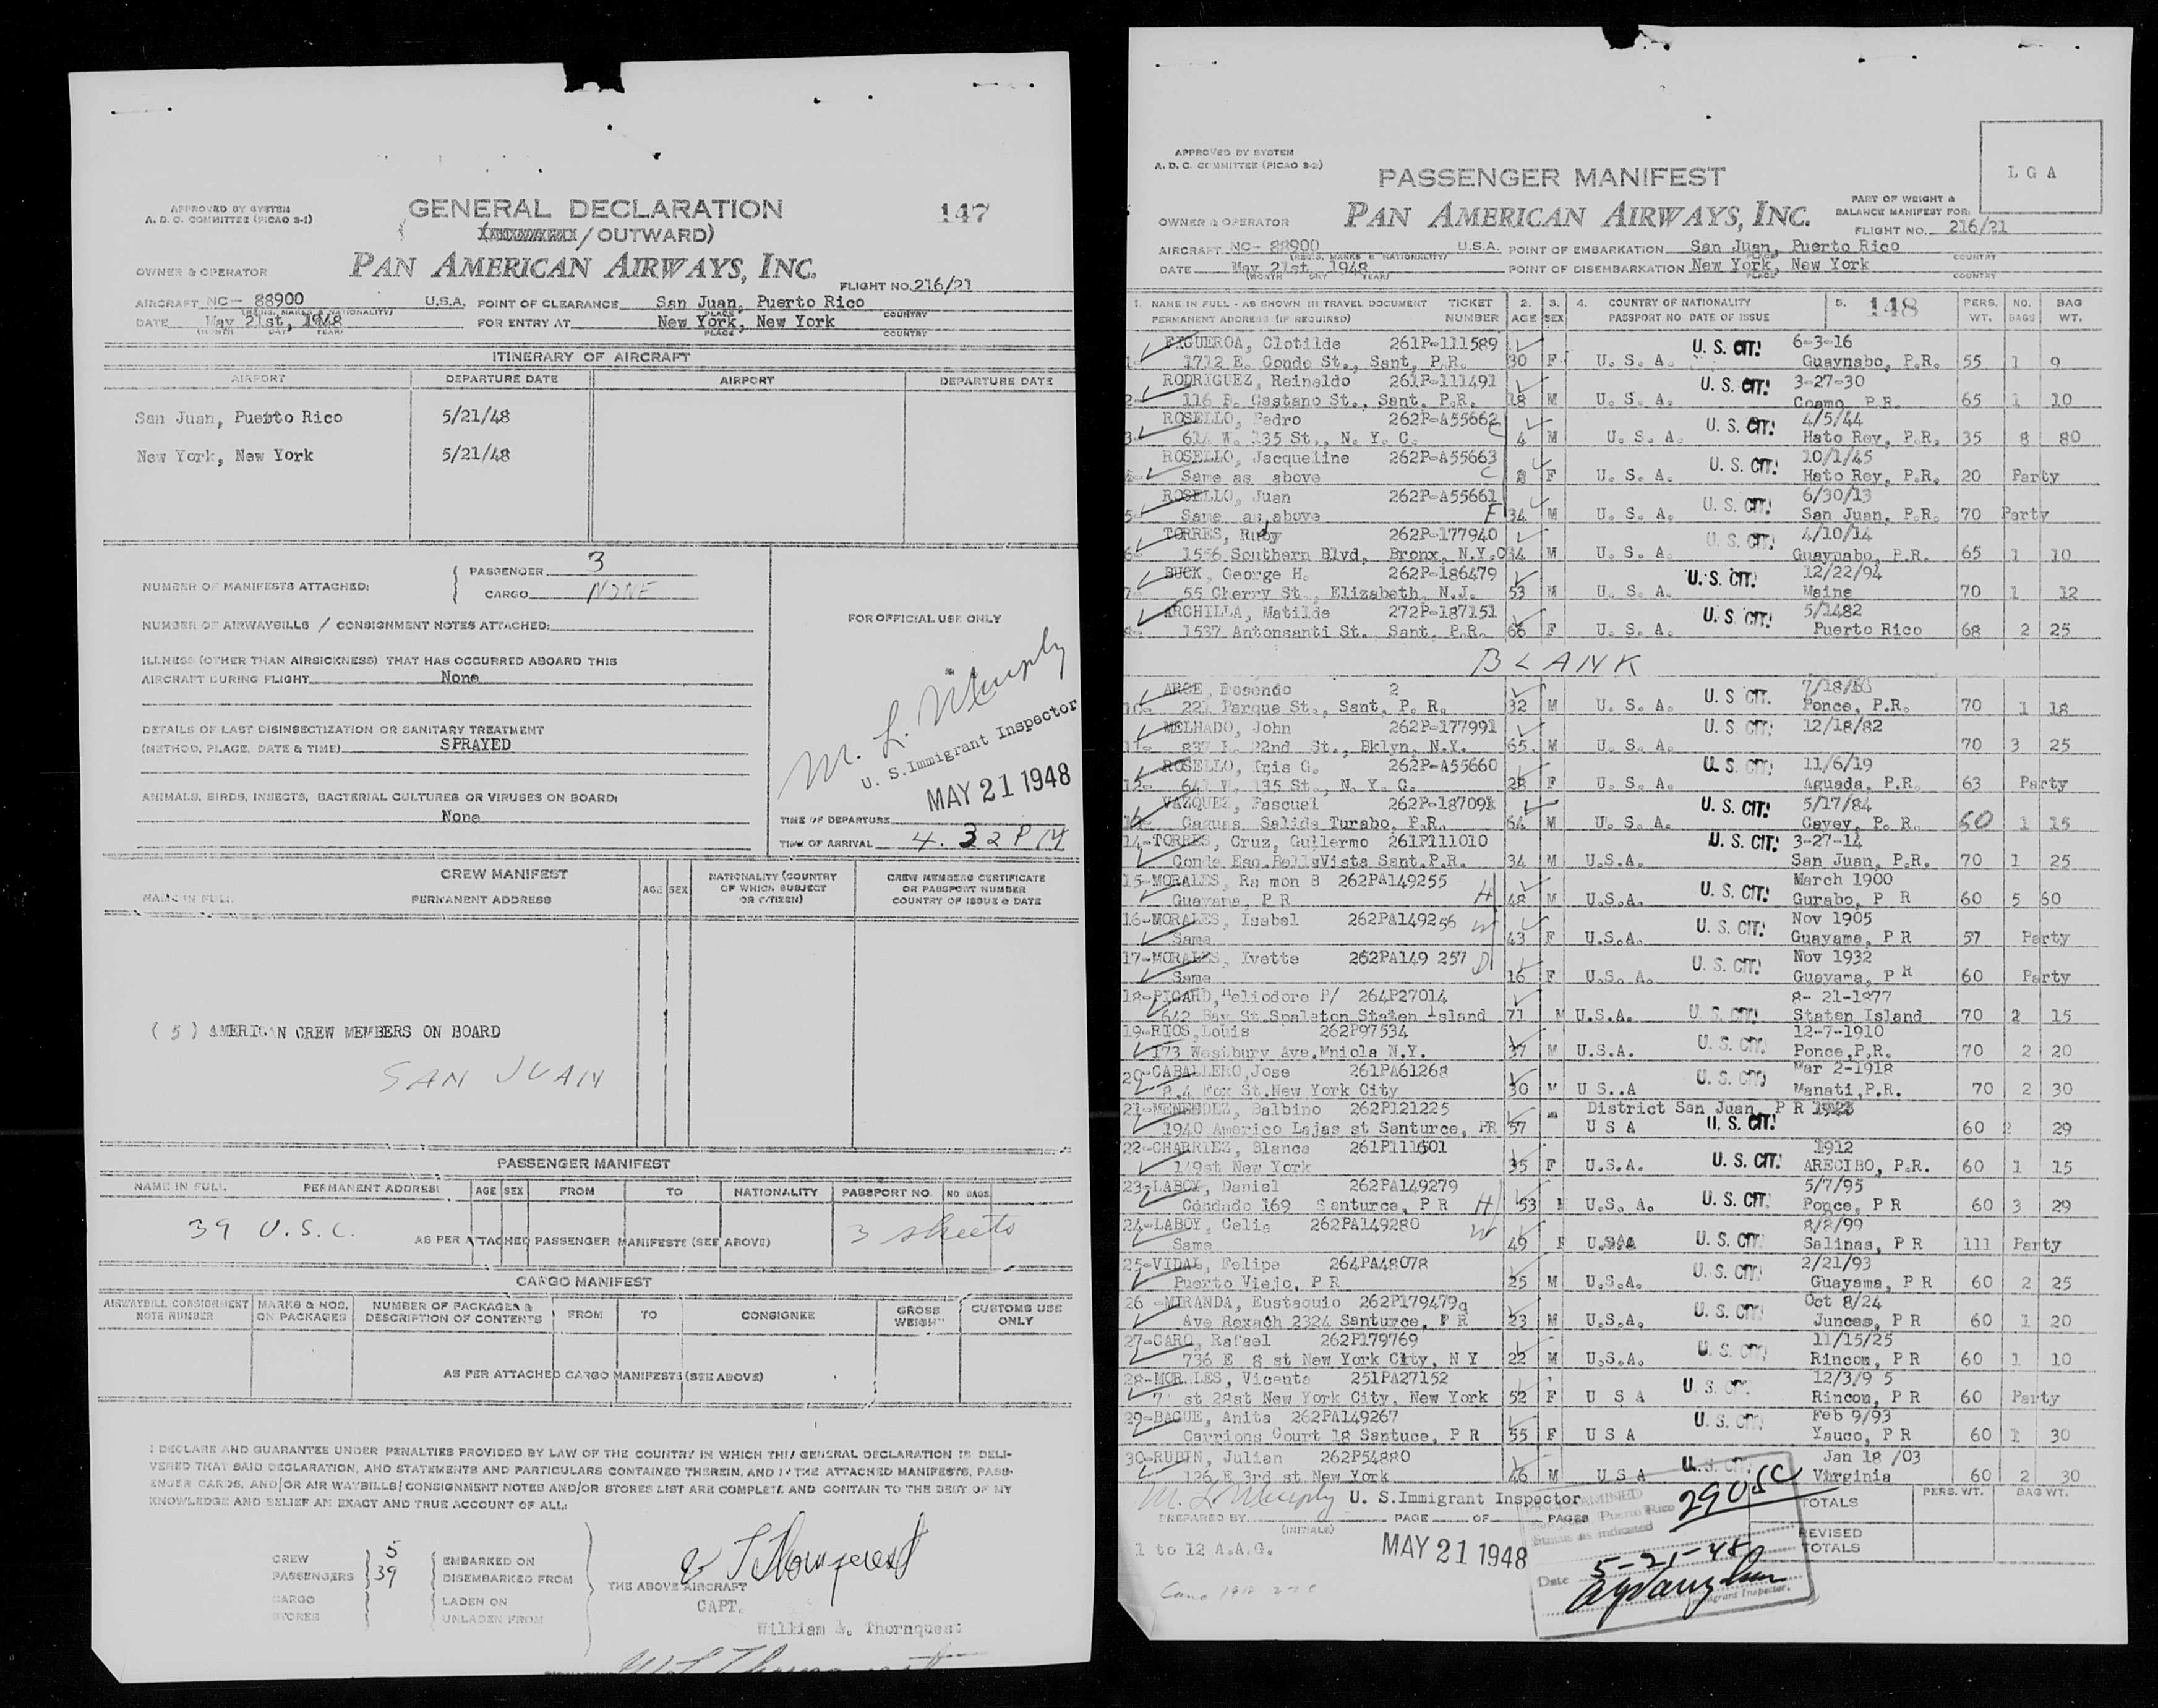 APPROVED BY SYSTEM
A. D. C. COMMITTEE (PICAO 3-1)
GENERAL DECLARATION
147
/ OUTWARD)
OWNER & OPERATOR
PAN AMERICAN AIRWAYS, INC.
FLIGHT NO. 216/21
AIRCRAFT NC- 88900 U.S.A. POINT OF CLEARANCE San Juan, Puerto Rico
(REGIS. MARKS & NATIONALITY) PLACE COUNTRY
DATE May 21st, 1948 FOR ENTRY AT New York, New York
(MONTH DAY YEAR) PLACE COUNTRY
ITINERARY OF AIRCRAFT
AIRPORT DEPARTURE DATE AIRPORT DEPARTURE DATE
San Juan, Puerto Rico 5/21/48
New York, New York 5/21/48
NUMBER OF MANIFESTS ATTACHED:
PASSENGER 3
CARGO NONE
NUMBER OF AIRWAYBILLS / CONSIGNMENT NOTES ATTACHED:
ILLNESS (OTHER THAN AIRSICKNESS) THAT HAS OCCURRED ABOARD THIS
AIRCRAFT DURING FLIGHT None
DETAILS OF LAST DISINSECTIZATION OR SANITARY TREATMENT
(METHOD, PLACE, DATE & TIME) SPRAYED
ANIMALS, BIRDS, INSECTS, BACTERIAL CULTURES OR VIRUSES ON BOARD:
None
FOR OFFICIAL USE ONLY
M. L. Murphy
U. S. Immigrant Inspector
MAY 21 1948
TIME OF DEPARTURE
TIME OF ARRIVAL 4.32 PM
CREW MANIFEST
NAME IN FULL PERMANENT ADDRESS AGE SEX
NATIONALITY (COUNTRY OF WHICH SUBJECT OR CITIZEN)
CREW MEMBERS CERTIFICATE OR PASSPORT NUMBER COUNTRY OF ISSUE & DATE
( 5 ) AMERICAN CREW MEMBERS ON BOARD
SAN JUAN
PASSENGER MANIFEST
NAME IN FULL PERMANENT ADDRESS AGE SEX FROM TO NATIONALITY PASSPORT NO. NO BAGS
39 U.S.C. AS PER ATTACHED PASSENGER MANIFESTS (SEE ABOVE) 3 sheets
CARGO MANIFEST
AIRWAYBILL CONSIGNMENT NOTE NUMBER
MARKS & NOS. ON PACKAGES
NUMBER OF PACKAGES & DESCRIPTION OF CONTENTS
FROM TO CONSIGNEE
GROSS WEIGHT
CUSTOMS USE ONLY
AS PER ATTACHED CARGO MANIFESTS (SEE ABOVE)
I DECLARE AND GUARANTEE UNDER PENALTIES PROVIDED BY LAW OF THE COUNTRY IN WHICH THIS GENERAL DECLARATION IS DELI-
VERED THAT SAID DECLARATION, AND STATEMENTS AND PARTICULARS CONTAINED THEREIN, AND IN THE ATTACHED MANIFESTS, PASS-
ENGER CARDS, AND/OR AIR WAYBILLS/CONSIGNMENT NOTES AND/OR STORES LIST ARE COMPLETE AND CONTAIN TO THE BEST OF MY
KNOWLEDGE AND BELIEF AN EXACT AND TRUE ACCOUNT OF ALL:
CREW 5 EMBARKED ON
PASSENGERS 39 DISEMBARKED FROM
CARGO LADEN ON
STORES UNLADEN FROM
THE ABOVE AIRCRAFT
CAPT.
William L. Thornquest
APPROVED BY SYSTEM
A. D. C. COMMITTEE (PICAO 3-2)
PASSENGER MANIFEST
LGA
OWNER & OPERATOR
PAN AMERICAN AIRWAYS, INC.
PART OF WEIGHT &
BALANCE MANIFEST FOR:
FLIGHT NO. 216/21
AIRCRAFT NC- 88900 U.S.A. POINT OF EMBARKATION San Juan, Puerto Rico
(REGIS. MARKS & NATIONALITY) PLACE COUNTRY
DATE May 21st, 1948 POINT OF DISEMBARKATION New York, New York
(MONTH DAY YEAR) PLACE COUNTRY
1. NAME IN FULL - AS SHOWN IN TRAVEL DOCUMENT TICKET 2. 3. 4. COUNTRY OF NATIONALITY 5. 148 PERS. NO. BAG
PERMANENT ADDRESS (IF REQUIRED) NUMBER AGE SEX PASSPORT NO. DATE OF ISSUE WT. BAGS WT.
FIGUEROA, Clotilde 261P-111589 U. S. CIT! 6-3-16
1- 1712 E. Conde St., Sant, P.R. 30 F U. S. A. Guaynabo, P.R. 55 1 9
RODRIGUEZ, Reinaldo 261P-111491 U. S. CIT! 3-27-30
2- 116 R. Castano St., Sant. P.R. 18 M U. S. A. Coamo P.R. 65 1 10
ROSELLO, Pedro 262P-A55662 U. S. CIT! 4/5/44
3- 614 W. 135 St., N. Y. C. 4 M U. S. A. Hato Rey, P.R. 35 8 80
ROSELLO, Jacqueline 262P-A55663 U. S. CIT! 10/1/45
Same as above F U. S. A. Hato Rey, P.R. 20 Party
ROSELLO, Juan 262P-A55661 U. S. CIT! 6/30/13
5- Same as above F 34 M U. S. A. San Juan, P.R. 70 Party
TORRES, Rudy 262P-177940 U. S. CIT! 4/10/14
6- 1556 Southern Blvd, Bronx, N.Y.C 34 M U. S. A. Guaynabo, P.R. 65 1 10
BUCK, George H. 262P-186479 U. S. CIT! 12/22/94
7- 55 Cherry St., Elizabeth, N.J. 53 M U. S. A. Maine 70 1 12
ARCHILLA, Matilde 272P-187151 U. S. CIT! 5/1482
8- 1537 Antonsanti St. Sant, P.R. 66 F U. S. A. Puerto Rico 68 2 25
BLANK
ARCE, Rosendo 2 U. S. CIT.
10- 221 Parque St., Sant, P. R. 32 M U. S. A. Ponce, P.R. 70 1 18
MELHADO, John 262P-177991 U. S. CIT! 12/18/82
11- 22nd St., Bklyn, N.Y. 65 M U. S. A. 70 3 25
ROSELLO, Iris G. 262P-A55660 U. S. CIT! 11/6/19
12- 641 W. 135 St., N. Y. C. 28 F U. S. A. Aguada, P.R. 63 Party
VAZQUEZ, Pascual U. S. CIT! 5/17/84
Caguas Salida Turabo, P.R. 64 M U. S. A. Cayey, P. R. 60 1 15
14-TORRES, Cruz, Guillermo 261P111010 U. S. CIT! 3-27-14
Conde Esq. BellaVista Sant.P.R. 34 M U.S.A. San Juan, P.R. 70 1 25
15-MORALES, Ra mon B 262PA149255 H March 1900
Guayama, P R 48 M U.S.A. U. S. CIT! Gurabo, P R 60 5 60
16-MORALES, Isabel 262PA149256 W Nov 1905
Same 43 F U.S.A. U. S. CIT! Guayama, P R 57 Party
17-MORALES, Ivette 262PA149 257 D Nov 1932
Same 16 F U.S. A. U. S. CIT! Guayama, P R 60 Party
18-PICARD, Heliodore P/ 264P27014 8- 21-1877
642 Bay St. Staten Island 71 M U.S.A. U. S. CIT! Staten Island 70 2 15
19-RIOS, Louis 262P97534 12-7-1910
173 Westbury Ave.Mniola N.Y. 37 M U.S.A. U. S. CIT! Ponce,P.R. 70 2 20
20-CABALLERO,Jose 261PA61268 Mar 2-1918
Fox St.New York City 30 M U S..A U. S. CIT! Manati,P.R. 70 2 30
21-MENENDEZ, Balbino 262P121225 District San Juan, P R
1940 Americo Lajas st Santurce, PR 57 U S A U. S. CIT! 60 2 29
22-CHARRIEZ, Blanca 261P111601 1912
149st New York 35 F U.S.A. U. S. CIT! ARECIBO, P.R. 60 1 15
23-LABOY, Daniel 262PA149279 5/7/95
Condado 169 Santurce, P R H 53 U.S. A. U. S. CIT. Ponce, P R 60 3 29
24-LABOY, Celia 262PA149280 W 8/8/99
Same 49 F U. S. CIT! Salinas, P R 111 Party
25-VIDAL, Felipe 264PA48078 2/21/93
Puerto Viejo, P R 25 M U.S.A. U. S. CIT! Guayama, P R 60 2 25
26 -MIRANDA, Eustaquio 262P179479 Oct 8/24
Ave Rexach 2324 Santurce, P R 23 M U.S.A. U. S. CIT! Juncos, P R 60 1 20
27-CARO, Rafael 262P179769 11/15/25
736 E 8 st New York City, N Y 22 M U.S.A. U. S. CIT! Rincon, P R 60 1 10
28-MORALES, Vicenta 251PA27152 12/3/9 5
st 28st New York City, New York 52 F U S A U. S. CIT. Rincon, P R 60 Party
29-BAGUE, Anita 262PA149267 Feb 9/93
Carrions Court 18 Santuce, P R 55 F U S A U. S. CIT! Yauco, P R 60 1 30
30-RUBIN, Julian 262P54880 Jan 18 /03
126 E 3rd st New York 46 M U S A U. S. CIT. Virginia 60 2 30
M. L. Murphy U. S. Immigrant Inspector
PREPARED BY (INITIALS) PAGE OF PAGES
29 USC
TOTALS PERS. WT. BAG WT.
REVISED TOTALS
1 to 12 A.A.G.
MAY 21 1948
EXAMINED
Puerto Rico
Status as indicated
Date 5-21-48
Immigrant Inspector.